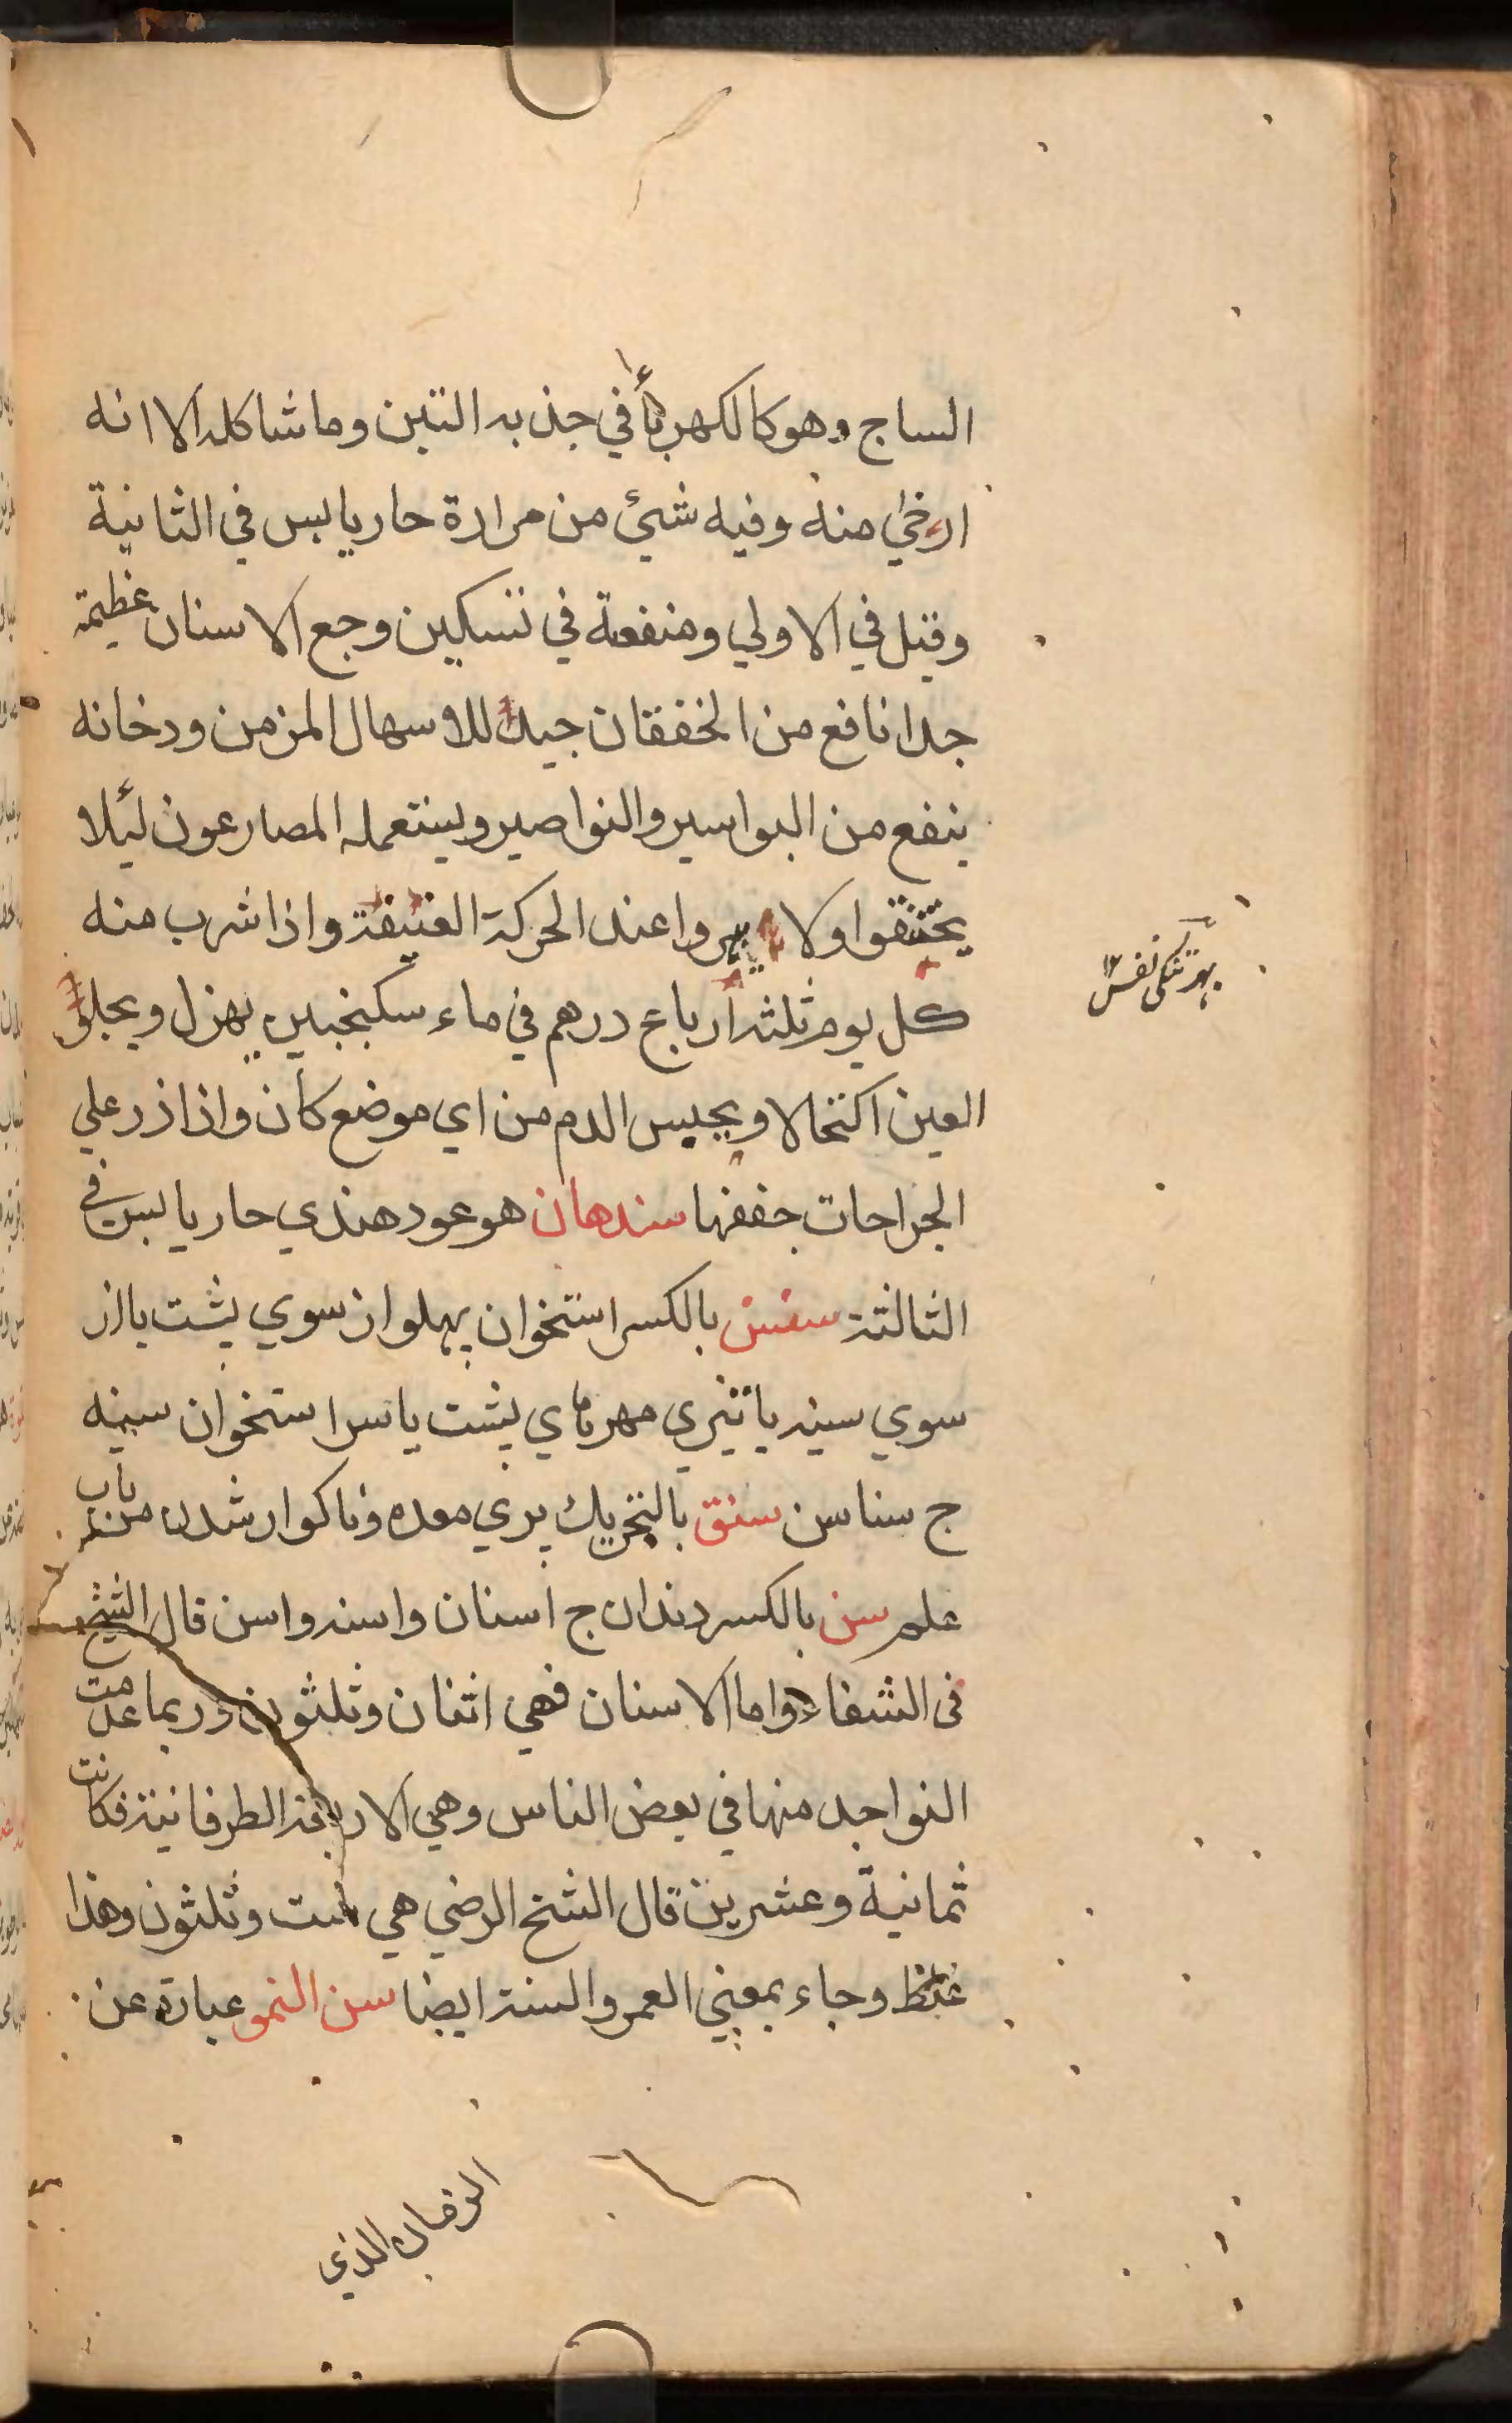 الساج وهو كالكهرباء في جذبه التبن وما شاكله الا انه
ارخي منه وفيه شيئ من مرارة حار يابس في الثانية
وقيل في الاولي ومنفعة في تسكين وجع الاسنان عظيمة
جدا نافع من الخفقان جيد للاسهال المزمن ودخانه
ينفع من البواسير والنواصير ويستعمله المصارعون لئلا
يختنقوا ولا يبهروا عند الحركة العنيفة واذا شرب منه
كل يوم ثلثة ارباع درهم في ماء سكنجبين يهزل ويجلو
العين اكتحالا ويحبس الدم من اي موضع كان واذا ذر علي
الجراحات جففها سندهان هو عود هندي حار يابس في
الثالثة سنسن بالكسر استخوان پهلو از سوي پشت يا از
سوي سينه يا تيزي مهرهاي پشت يا سر استخوان سينه
ج سناسن سنق بالتحريك پري معده وناكوار شدن من باب
علم سن بالكسر دندان ج اسنان واسنه واسن قال الشيخ
في الشفاء واما الاسنان فهي اثنان وثلثون وربما عدمت
النواجد منها في بعض الناس وهي الاربعة الطرفانية فكانت
ثمانية وعشرين قال الشيخ الرضي هي ست وثلثون وهذا
غلط وجاء بمعني العمر والسنة ايضا سن النمو عبارة عن
بهر تنكی نفس ١٢
الزمان الذي